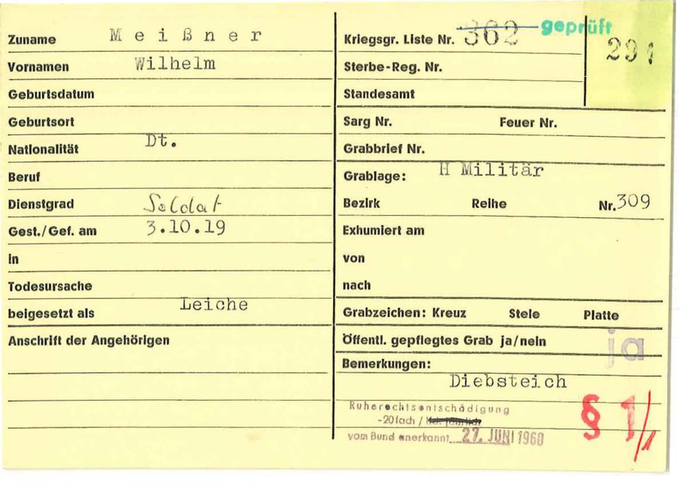 Zuname Meißner
Vornamen Wilhelm
Geburtsdatum
Geburtsort
Nationalität Dt.
Beruf
Dienstgrad Soldat
Gest./Gef. am 3.10.19
in
Todesursache
beigesetzt als Leiche
Anschrift der Angehörigen
Kriegsgr. Liste Nr. 362 geprüft 291
Sterbe-Reg. Nr.
Standesamt
Sarg Nr. Feuer Nr.
Grabbrief Nr.
Grablage: H Militär
Bezirk Reihe Nr. 309
Exhumiert am
von
nach
Grabzeichen: Kreuz Stele Platte
Öffentl. gepflegtes Grab ja/nein ja
Bemerkungen:
Diebsteich
Ruherechtsentschädigung
-20fach /
vom Bund anerkannt 27. JUNI 1960
§ 1/1